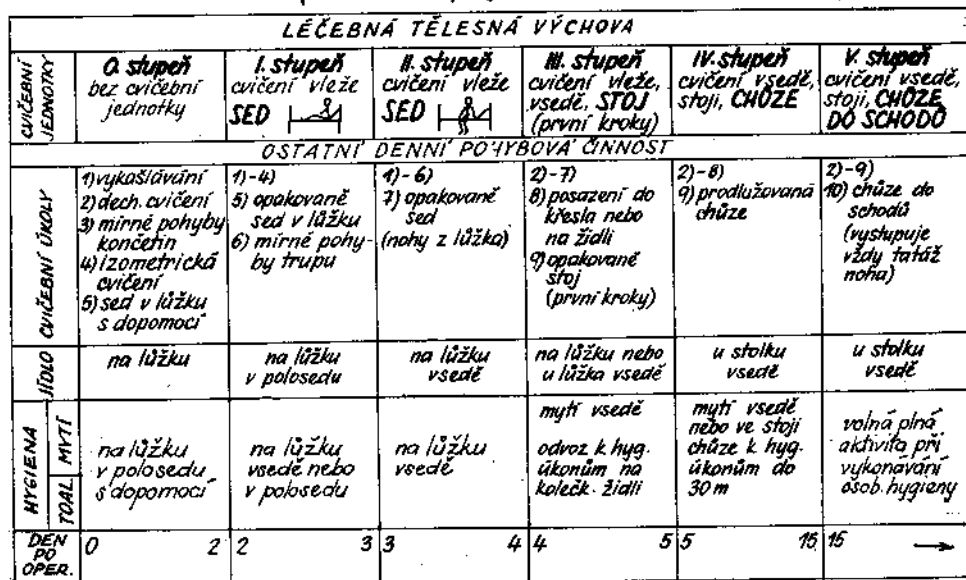 LÉČEBNÁ TĚLESNÁ VÝCHOVA
CVIČEBNÍ
JEDNOTKY
0. stupeň
bez cvičební
jednotky
I. stupeň
cvičení vleže
SED
II. stupeň
cvičení vleže
SED
III. stupeň
cvičení vleže,
vsedě, STOJ
(první kroky)
IV. stupeň
cvičení vsedě,
stoji, CHŮZE
V. stupeň
cvičení vsedě,
stoji, CHŮZE
DO SCHODŮ
OSTATNÍ DENNÍ POHYBOVÁ ČINNOST
CVIČEBNÍ ÚKOLY
1) vykašlávání
2) dech. cvičení
3) mírné pohyby
končetin
4) izometrická
cvičení
5) sed v lůžku
s dopomocí
1)-4)
5) opakované
sed v lůžku
6) mírné pohy-
by trupu
1)-6)
7) opakované
sed
(nohy z lůžka)
2)-7)
8) posazení do
křesla nebo
na židli
9) opakované
stoj
(první kroky)
2)-8)
9) prodlužovaná
chůze
2)-9)
10) chůze do
schodů
(vystupuje
vždy tatáž
noha)
JÍDLO
na lůžku
na lůžku
v polosedu
na lůžku
vsedě
na lůžku nebo
u lůžka vsedě
u stolku
vsedě
u stolku
vsedě
HYGIENA
MYTÍ
TOAL.
na lůžku
v polosedu
s dopomocí
na lůžku
vsedě nebo
v polosedu
na lůžku
vsedě
mytí vsedě
odvoz k hyg.
úkonům na
kolečk. židli
mytí vsedě
nebo ve stoji
chůze k hyg.
úkonům do
30 m
volná plná
aktivita při
vykonávání
osob. hygieny
DEN
PO
OPER.
0 2
2 3
3 4
4 5
5 15
15 →